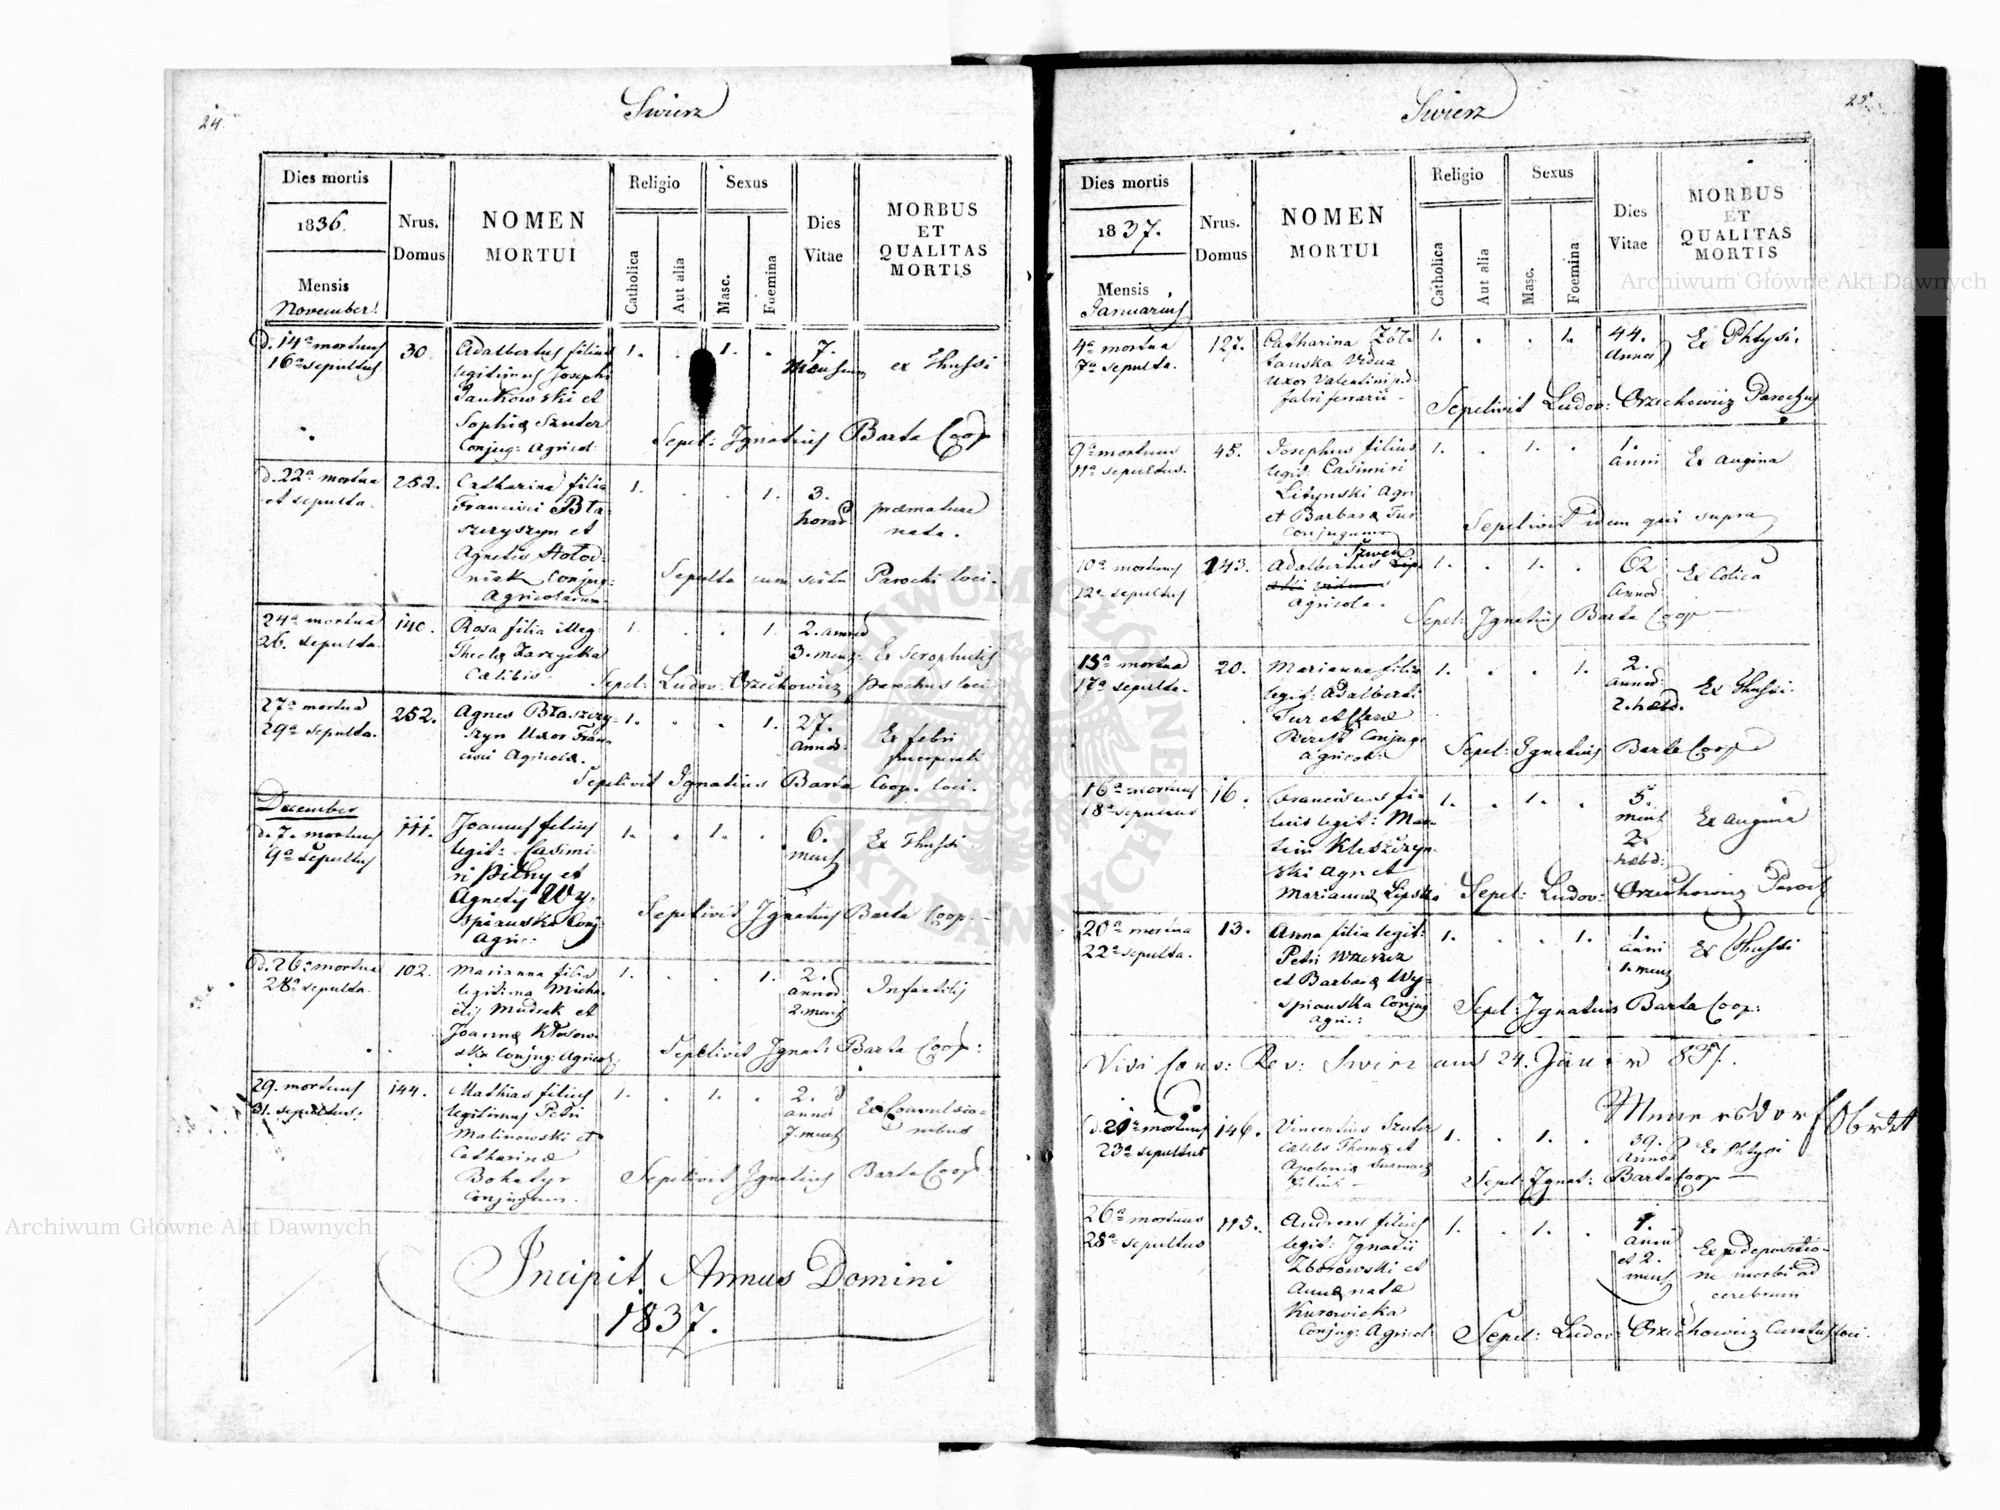 24.
Swierz
Dies mortis
1836.
Mensis
November
Nrus.
Domus
NOMEN
MORTUI
Religio
Catholica
Aut alia
Sexus
Masc.
Foemina
Dies
Vitae
MORBUS
ET
QUALITAS
MORTIS
d. 14a mortuus
16a sepultus
30
Adalbertus filius
legitimus Josephi
Jankowski et
Sophiæ Szuter
Conjug: Agricol:
1. . 1. .
7.
Mensium
ex Thussi
Sepel: Ignatius Barta Coop
d. 22a mortua
et sepulta.
252.
Catharina filia
Francisci Bła-
szczyszyn et
Agnetis Hołod-
niak Conjug:
Agricolarum.
1. . . 1.
3.
horas
præmature
nata.
Sepulta cum scitu Parochi loci.
24a mortua
26. sepulta.
140.
Rosa filia illeg:
Theclæ Zarzycka
Cælibis.
1. . . 1.
2. annos
3. mens:
Ex Scrophulis
Sepel: Ludov: Orzechowicz Parochus loci
27a mortua
29a sepulta.
252.
Agnes Błaszczy-
szyn Uxor Fran-
cisci Agricolæ.
1. . . 1.
27.
annos.
Ex febri
puerperali
Sepelivit Ignatius Barta Coop. loci.
December
d. 7. mortuus
9a sepultus
111.
Joannes filius
legit: Casimi-
ri Pitny et
Agnetis Wy-
spianska Conj:
Agric:
1. . 1. .
6.
mens
Ex Thussi
Sepelivit Ignatius Barta Coop.
d. 26a mortua
28a sepulta.
102.
Marianna filia
legitima Micha-
elis Mudrak et
Joannæ Kłosow-
ska Conjug: Agricol:
1. . . 1.
2.
annos
2. mens
Infantilis
Sepelivit Ignati: Barta Coop:
29. mortuus
31. sepultus.
144.
Mathias filius
legitimus Petri
Malinowski et
Catharinæ
Bohatyr
Conjugum.
1. . 1. .
2.
annos
7. mens
Ex Convulsio-
nibus
Sepelivit Ignatius Barta Coop
Incipit Annus Domini
1837.
25.
Swierz
Dies mortis
1837.
Mensis
Januarius
Nrus.
Domus
NOMEN
MORTUI
Religio
Catholica
Aut alia
Sexus
Masc.
Foemina
Dies
Vitae
MORBUS
ET
QUALITAS
MORTIS
4a mortua
7a sepulta.
127.
Catharina Żół-
tanska Vidua
Uxor Valentini
fabri ferrarii
1. . . 1.
44.
Annos
Ex Phtysi.
Sepelivit Ludov: Orzechowicz Parochus
9a mortuus
11a sepultus.
45.
Josephus filius
legit: Casimiri
Litynski Agr:
et Barbaræ Tur
Conjugum
1. . 1. .
1.
anni
Ex Angina
Sepelivit idem qui supra
10a mortuus
12a sepultus
143.
Adalbertus
Agricola.
1. . 1. .
62
Annos
Ex Colica
Sepel: Ignatius Barta Coop
15a mortua
17a sepulta.
20.
Marianna filia
legit: Adalberti
Tur et
Conjug:
Agricol:
1. . . 1.
2.
annos
2. hebd.
Ex Thussi.
Sepel: Ignatius Barta Coop
16a mortuus
18a sepultus
16.
Franciscus fi-
lius legit: Mar-
tini Kleszczyn-
ski Agr: et
Mariannæ Lipska
1. . 1. .
5.
mens
2.
hebd:
Ex Angina
Sepel: Ludov: Orzechowicz Paroch
20a mortua
22a sepulta.
13.
Anna filia legit:
Petri Wrzeszcz
et Barbaræ Wy-
spianska Conjug
Agric:
1. . . 1.
1.
anni
1. mens
Ex Thussi
Sepel: Ignatius Barta Coop:
Visi Can: Rev: Swierz am 24. Jäner 837.
d. 21a mortuus
23a sepultus
146.
Vincentius Szuter
cælebs Thomæ et
Apoloniæ Surmacz
filius
1. . 1. .
39.
Annos
Ex Phtysi
Sepel: Ignat: Barta Coop
26a mortuus
28a sepultus
115.
Andreas filius
legit: Ignatii
Zborowski et
Annæ natæ
Kurowicka
Conjug: Agricol:
1. . 1. .
1.
anni
et 2.
mens
Ex depositio-
ne morbi ad
cerebrum
Sepel: Ludov: Orzechowicz Curatus loci.
Archiwum Główne Akt Dawnych
Archiwum Główne Akt Dawnych
ARCHIWUM GŁÓWNE AKT DAWNYCH